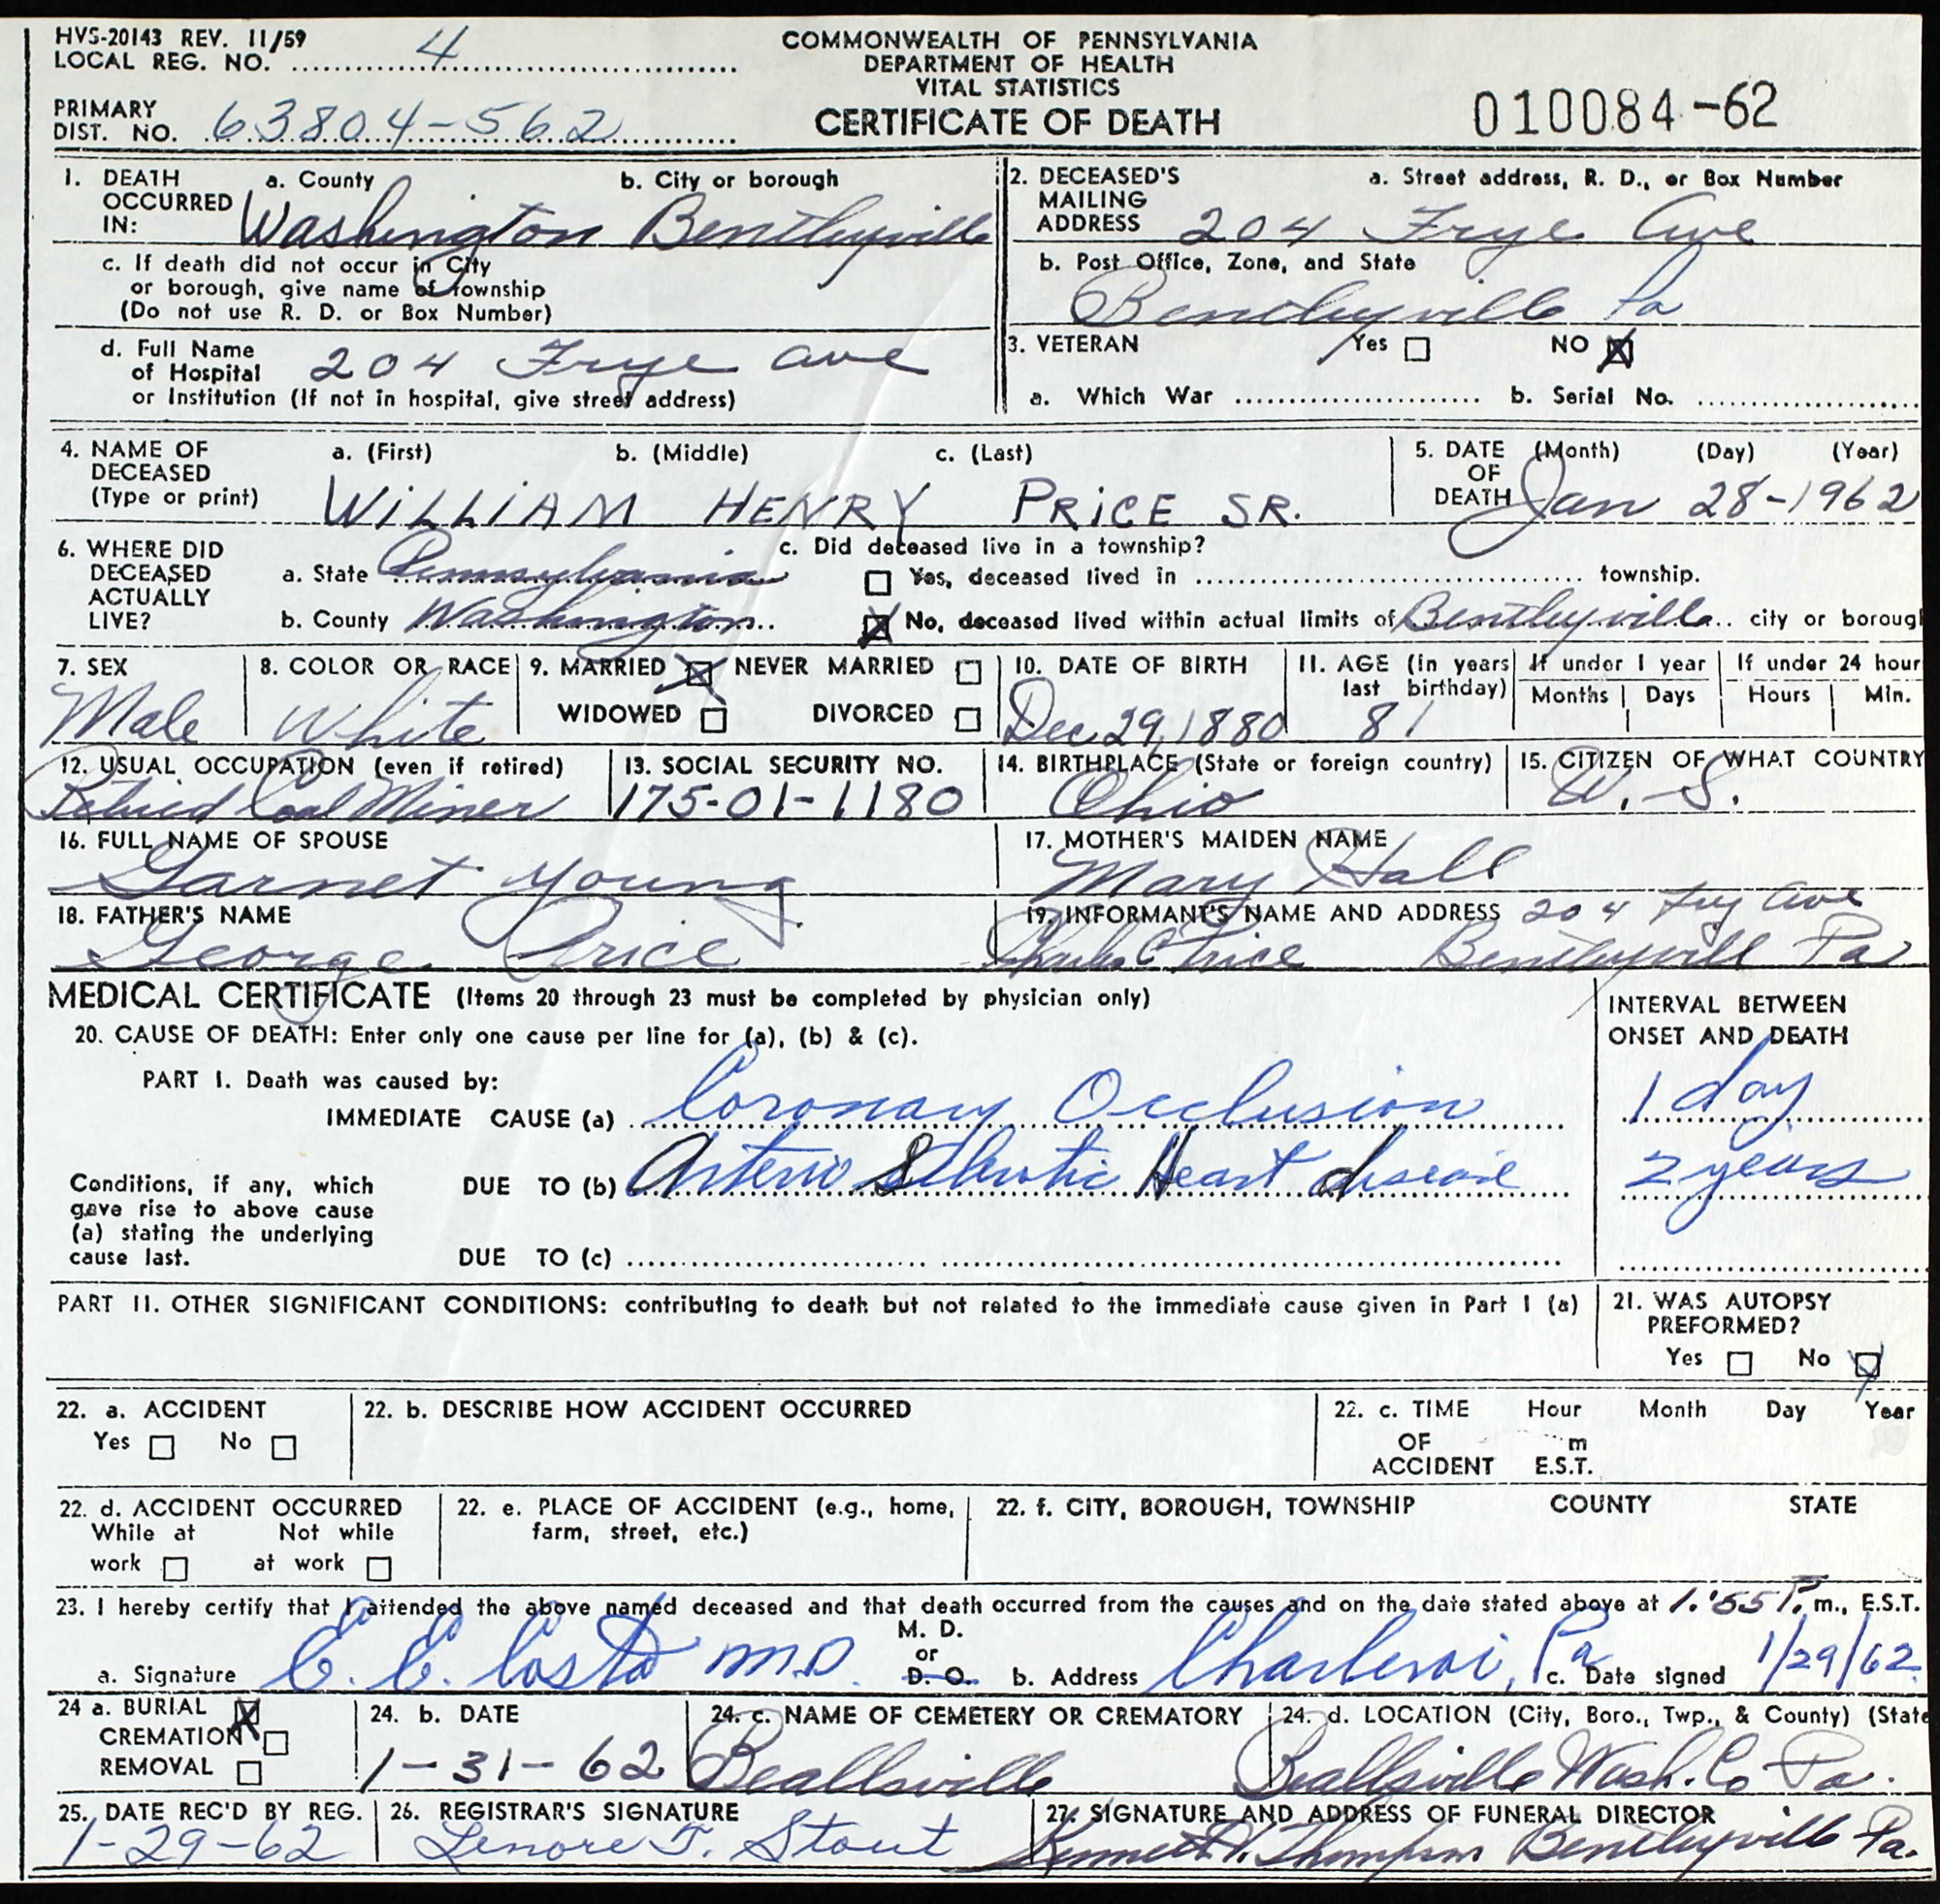 HVS-20143 REV. 11/59
LOCAL REG. NO. 4
COMMONWEALTH OF PENNSYLVANIA
DEPARTMENT OF HEALTH
VITAL STATISTICS
CERTIFICATE OF DEATH
PRIMARY
DIST. NO. 63804-562
010084-62
1. DEATH OCCURRED IN: a. County b. City or borough
Washington Bentleyville
c. If death did not occur in City
or borough, give name of township
(Do not use R. D. or Box Number)
d. Full Name
of Hospital 204 Frye Ave
or Institution (If not in hospital, give street address)
2. DECEASED'S MAILING ADDRESS a. Street address, R. D., or Box Number
204 Frye Ave
b. Post Office, Zone, and State
Bentleyville Pa
3. VETERAN Yes NO X
a. Which War b. Serial No.
4. NAME OF DECEASED (Type or print) a. (First) b. (Middle) c. (Last)
WILLIAM HENRY PRICE SR.
5. DATE OF DEATH (Month) (Day) (Year)
Jan 28-1962
6. WHERE DID DECEASED ACTUALLY LIVE?
a. State Pennsylvania
b. County Washington
c. Did deceased live in a township?
Yes, deceased lived in township.
X No, deceased lived within actual limits of Bentleyville city or boroug
7. SEX
Male
8. COLOR OR RACE
White
9. MARRIED X NEVER MARRIED
WIDOWED DIVORCED
10. DATE OF BIRTH
Dec 29, 1880
11. AGE (in years last birthday)
81
If under 1 year
Months Days
If under 24 hour
Hours Min.
12. USUAL OCCUPATION (even if retired)
Retired Coal Miner
13. SOCIAL SECURITY NO.
175-01-1180
14. BIRTHPLACE (State or foreign country)
Ohio
15. CITIZEN OF WHAT COUNTRY
U. S.
16. FULL NAME OF SPOUSE
Garnet Young
17. MOTHER'S MAIDEN NAME
Mary Hall
18. FATHER'S NAME
George Price
19. INFORMANT'S NAME AND ADDRESS 204 Fry Ave
Charles C Price Bentleyville Pa
MEDICAL CERTIFICATE (Items 20 through 23 must be completed by physician only)
20. CAUSE OF DEATH: Enter only one cause per line for (a), (b) & (c).
INTERVAL BETWEEN
ONSET AND DEATH
PART I. Death was caused by:
IMMEDIATE CAUSE (a) Coronary Occlusion 1 day
Conditions, if any, which
gave rise to above cause
(a) stating the underlying
cause last.
DUE TO (b) Arterio Sclerotic Heart disease 2 years
DUE TO (c)
PART II. OTHER SIGNIFICANT CONDITIONS: contributing to death but not related to the immediate cause given in Part I (a)
21. WAS AUTOPSY
PREFORMED?
Yes No X
22. a. ACCIDENT
Yes No
22. b. DESCRIBE HOW ACCIDENT OCCURRED
22. c. TIME OF ACCIDENT Hour Month Day Year
m
E.S.T.
22. d. ACCIDENT OCCURRED
While at work Not while at work
22. e. PLACE OF ACCIDENT (e.g., home,
farm, street, etc.)
22. f. CITY, BOROUGH, TOWNSHIP COUNTY STATE
23. I hereby certify that I attended the above named deceased and that death occurred from the causes and on the date stated above at 1:55 P. m., E.S.T.
M. D.
or
D. O.
a. Signature E. E. Costa M.D. b. Address Charleroi, Pa c. Date signed 1/29/62
24 a. BURIAL X
CREMATION
REMOVAL
24. b. DATE
1-31-62
24. c. NAME OF CEMETERY OR CREMATORY
Beallsville
24. d. LOCATION (City, Boro., Twp., & County) (State
Beallsville Wash. Co Pa.
25. DATE REC'D BY REG.
1-29-62
26. REGISTRAR'S SIGNATURE
Lenore T. Stout
27. SIGNATURE AND ADDRESS OF FUNERAL DIRECTOR
Kenneth V. Thompson Bentleyville Pa.